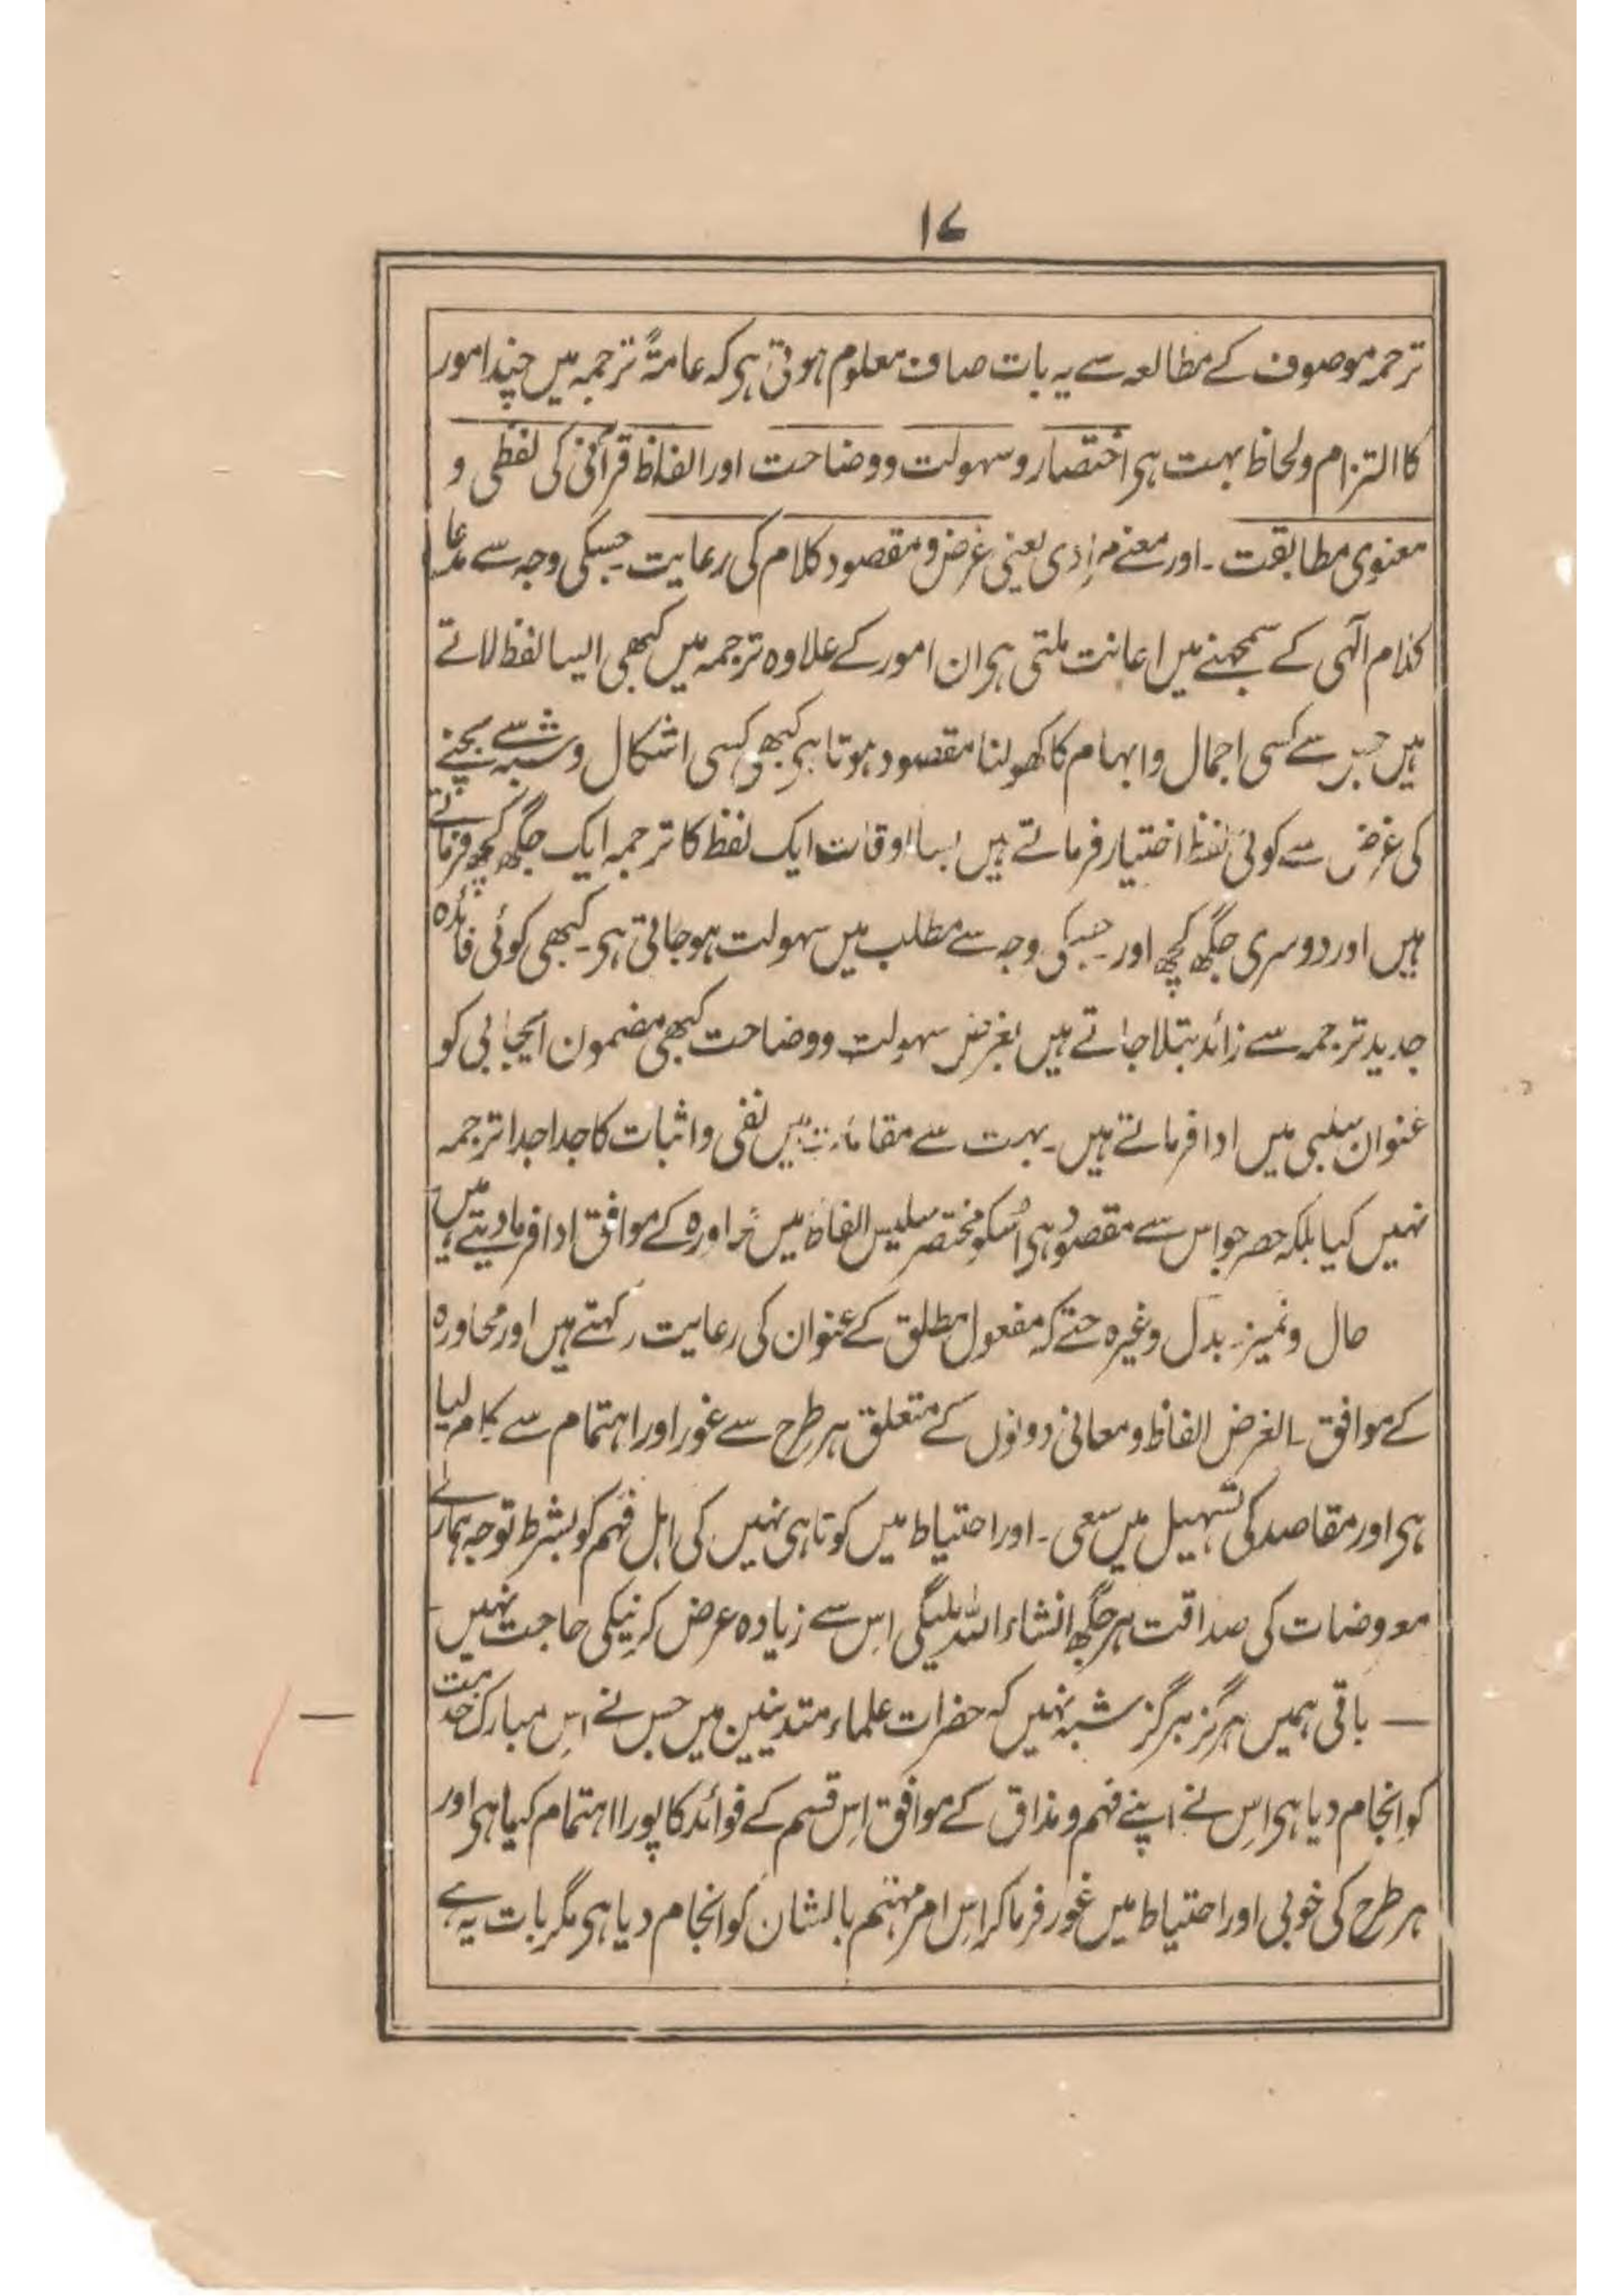 ۱۷
ترجمہ موصوف کے مطالعہ سے یہ بات صاف معلوم ہوتی ہی کہ عامۃً ترجمہ میں چند امور
کا التزام و لحاظ بہت ہی اختصار و سہولت و وضاحت اور الفاظ قرآنی کی لفظی و
معنوی مطابقت ۔ اور معنے مرادی یعنی غرض و مقصود کلام کی رعایت جسکی وجہ سے مدعا
کلام الٰہی کے سمجھنے میں اعانت ملتی ہی ان امور کے علاوہ ترجمہ میں کبھی ایسا لفظ لاتے
ہیں جس سے کسی اجمال و ابہام کا کھولنا مقصود ہوتا ہی کبھی کسی اشکال و شبہ سے بچنے
کی غرض سے کوئی لفظ اختیار فرماتے ہیں بسا اوقات ایک لفظ کا ترجمہ ایک جگھ کچھ فرماتے
ہیں اور دوسری جگھ کچھ اور ۔ جسکی وجہ سے مطلب میں سہولت ہو جاتی ہی ۔ کبھی کوئی فائدہ
جدید ترجمہ سے زائد بتلا جاتے ہیں بغرض سہولت و وضاحت کبھی مضمون ایجابی کو
عنوان سلبی میں ادا فرماتے ہیں ۔ بہت سے مقامات میں نفی و اثبات کا جدا جدا ترجمہ
نہیں کیا بلکہ حصر جو اس سے مقصود ہی اُسکو مختصر سلیس الفاظ میں محاورہ کے موافق ادا فرما دیتے ہیں
حال و تمیز ۔ بدل وغیرہ حتے کہ مفعول مطلق کے عنوان کی رعایت رکہتے ہیں اور محاورہ
کے موافق ۔ الغرض الفاظ و معانی دونوں کے متعلق ہر طرح سے غور اور اہتمام سے کام لیا
ہی اور مقاصد کی تسہیل میں سعی ۔ اور احتیاط میں کوتاہی نہیں کی اہل فہم کو بشرط توجہ ہمارے
معروضات کی صداقت ہر جگھ انشاء اللہ ملیگی اس سے زیادہ عرض کرنیکی حاجت نہیں
— باقی ہمیں ہرگز ہرگز شبہ نہیں کہ حضرات علماء متدینین میں جس نے اس مبارک خدمت
کو انجام دیا ہی اس نے اپنے فہم و مذاق کے موافق اس قسم کے فوائد کا پورا اہتمام کیا ہی اور
ہر طرح کی خوبی اور احتیاط میں غور فرما کر اس امر مہتم بالشان کو انجام دیا ہی مگر بات یہ ہے